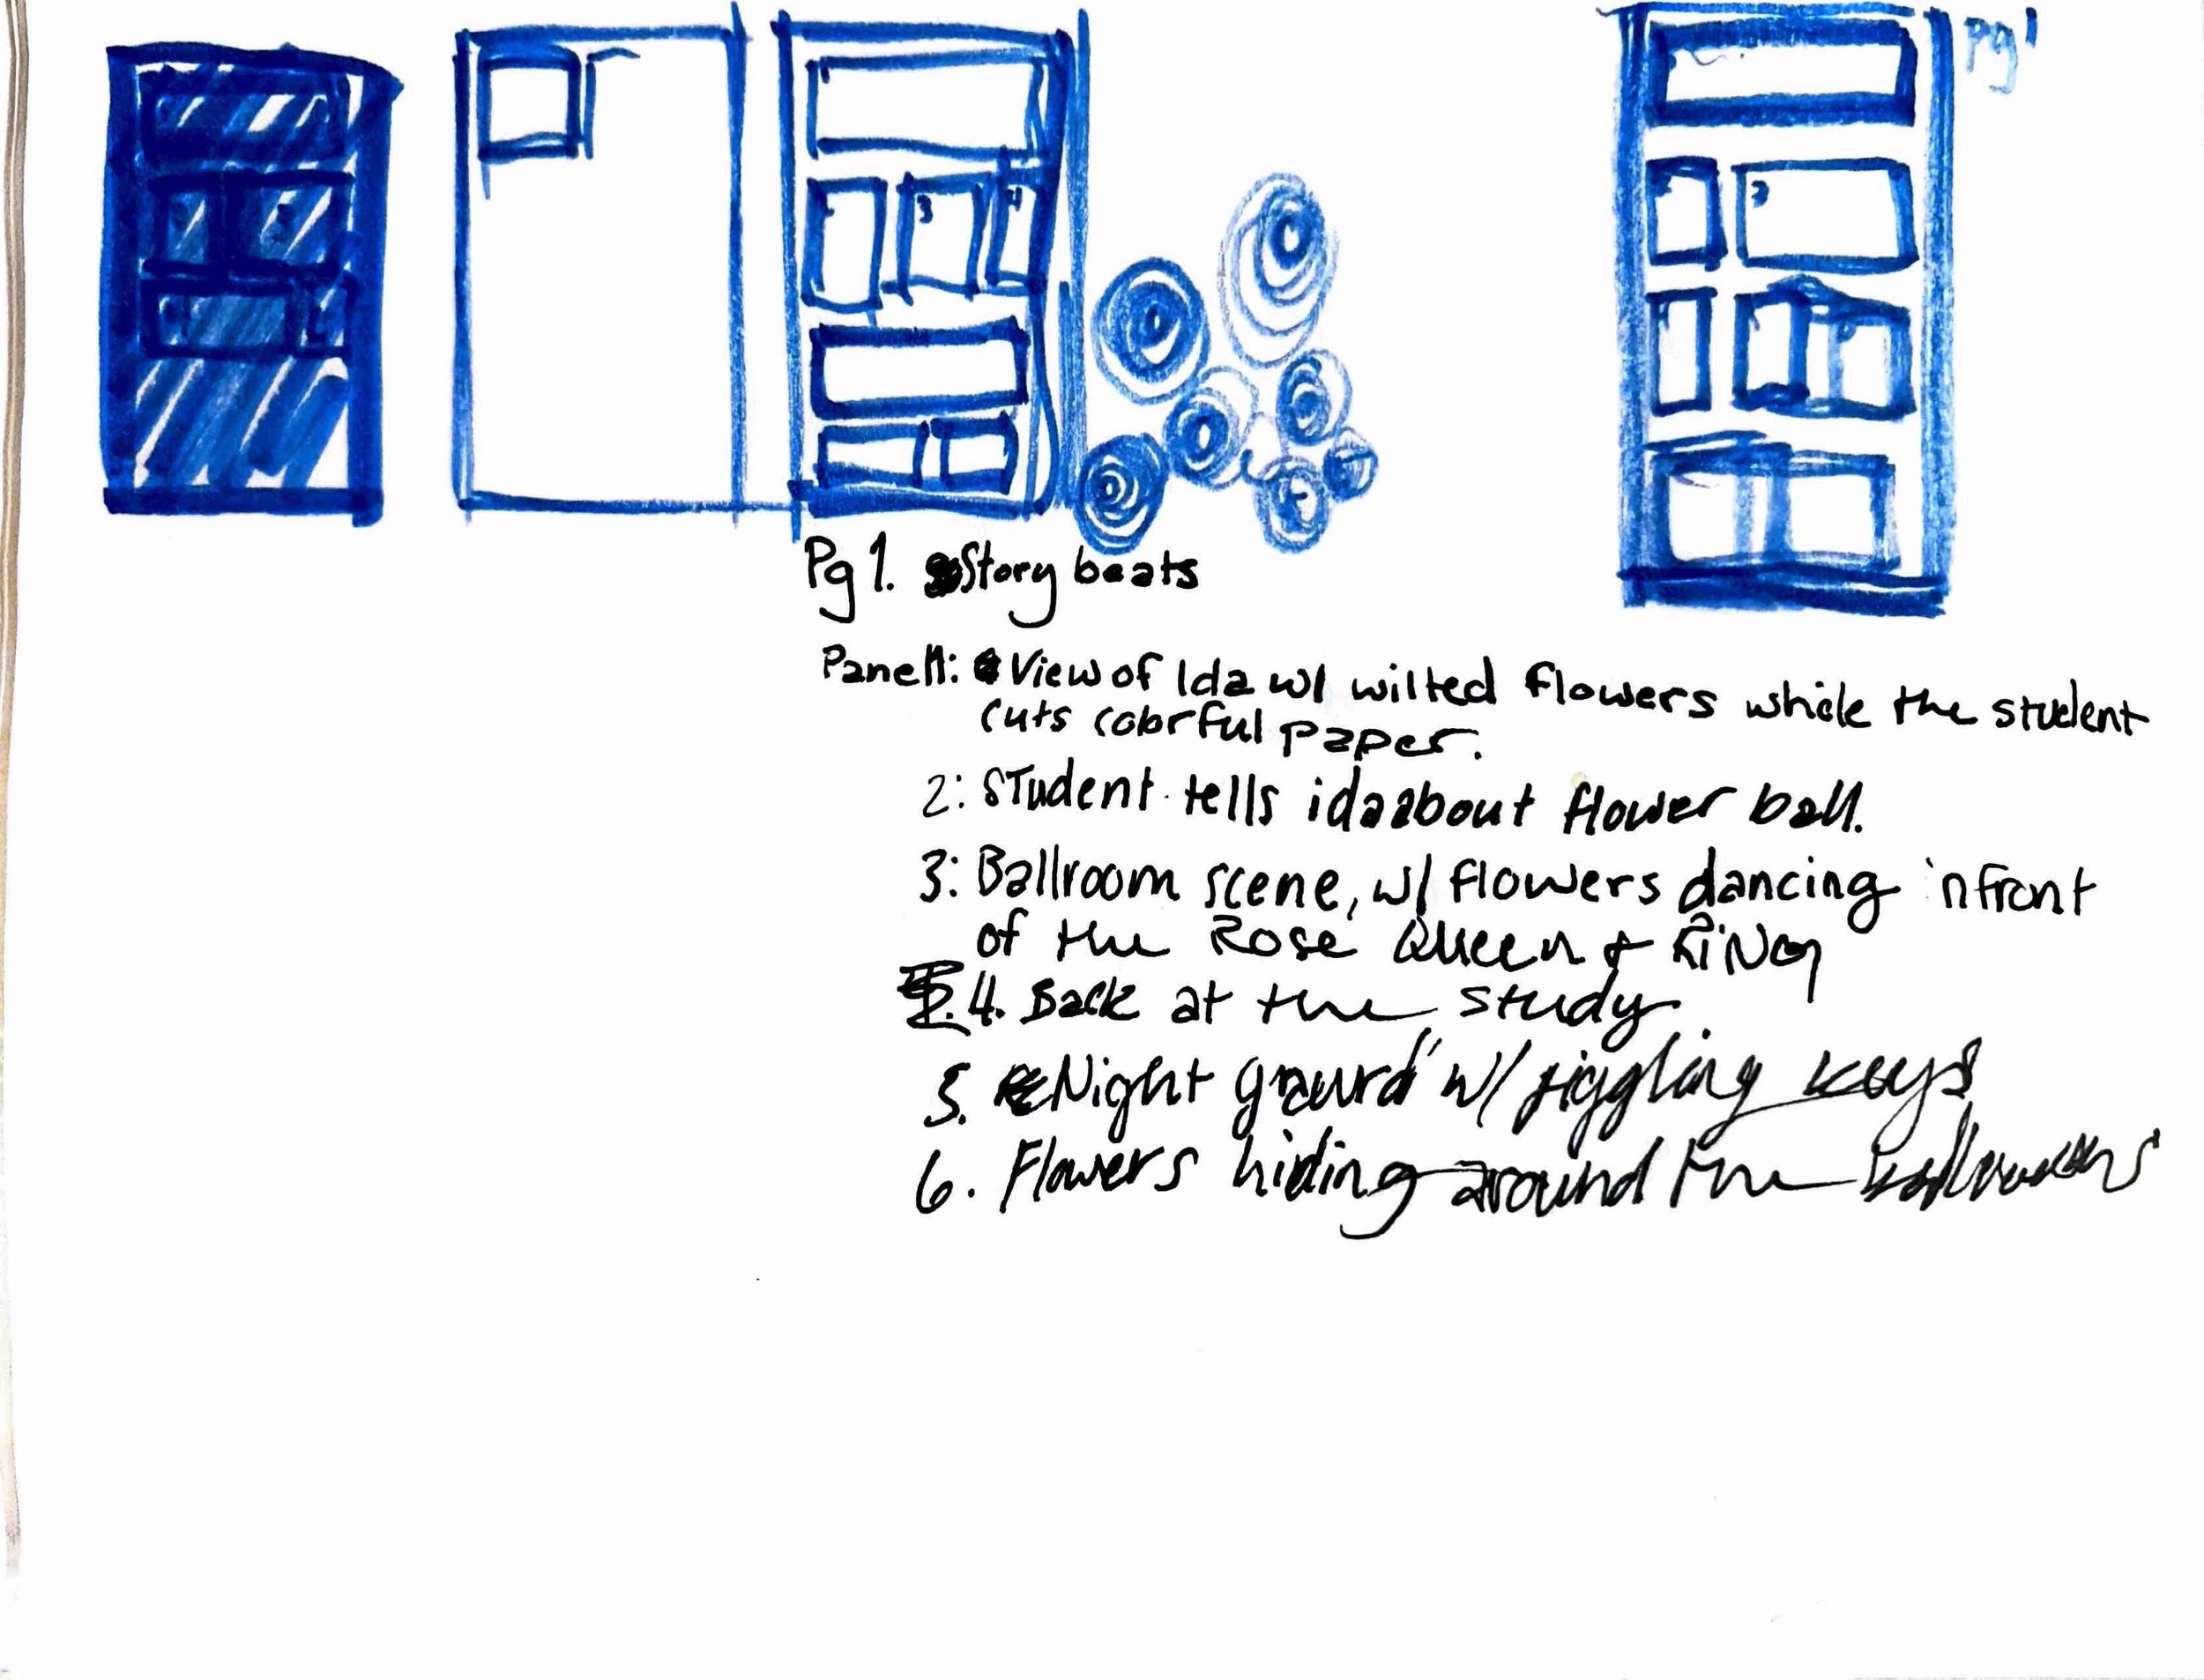 pg 1
1
3
4
3
Pg 1. Story beats
Panel 1: View of Ida w/ wilted flowers while the student
cuts colorful paper.
2: Student tells ida about flower ball.
3: Ballroom scene, w/ flowers dancing infront
of the Rose Queen + King
4. Back at the study
5. Night gaurd w/ jiggling keys
6. Flowers hiding around the ballroom